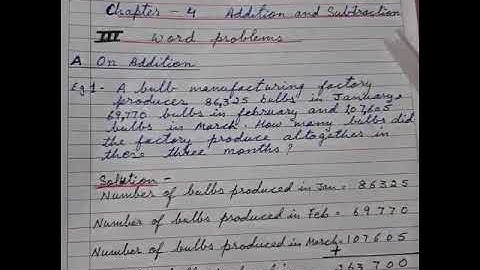 Chapter - 4 Addition and Subtraction
III Word problems
A On Addition
Eg 1- A bulb manufacturing factory
produces 86,325 bulbs in January,
69,770 bulbs in february and 107,605
bulbs in March. How many bulbs did
the factory produce altogether in
these three months?
Solution -
Number of bulbs produced in Jan = 86325
Number of bulbs produced in Feb = 69770
Number of bulbs produced in March = 107605
+
bulbs produced in 263700